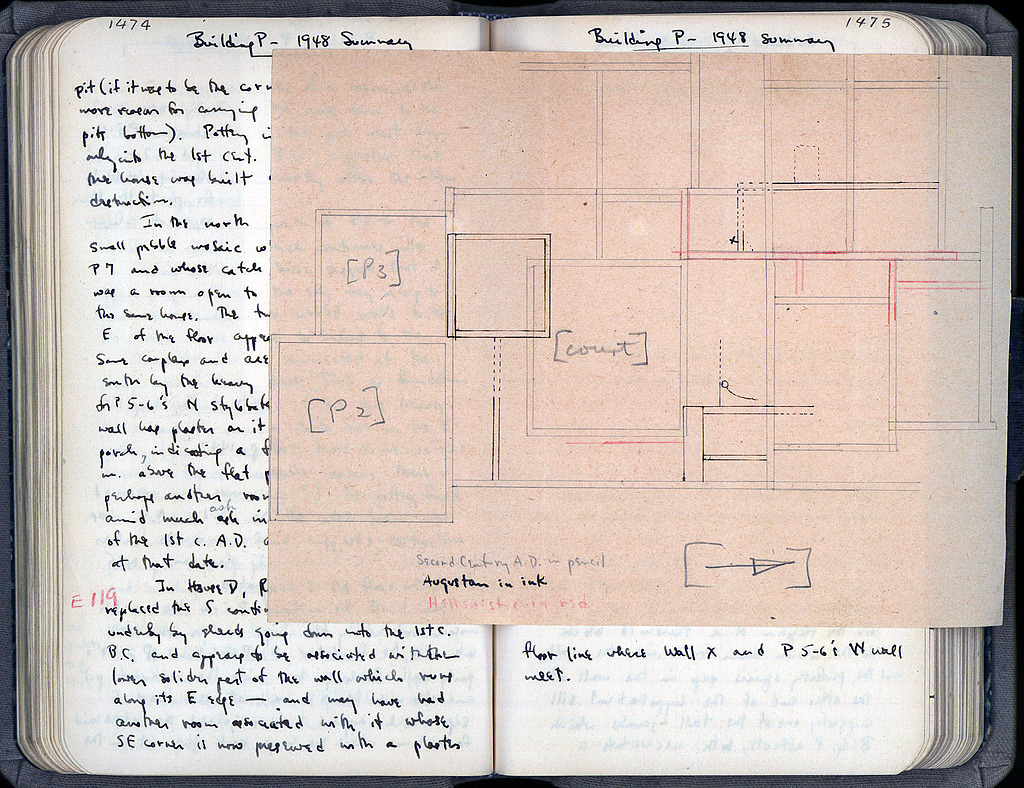 1474
Building P - 1948 Summary
pit (if it was to be the corn
more reason for carrying
pits bottom). Pottery i
only into the 1st cent.
the house was built
destruction.
In the north
small pebble mosaic w
P 7 and whose catch
was a room open to
the same house. The
E. of the floor appe
same complex and are
south by the heavy
for P 5-6's N stylobate
wall has plaster on it
porch, indicating a f
m. above the flat p
perhaps another room
ash
amid much ash in
of the 1st c. A.D.
at that date.
E 119
In House D, R
replaced the S
underlay by sherds going down into the 1st c.
B.C. and appears to be associated with the
lower solider part of the wall which runs
along its E edge — and may have had
another room associated with it whose
SE corner is now preserved with a plaster
1475
Building P - 1948 summary
[P3]
x
[court]
[P2]
Second Century A.D. in pencil
Augustan in ink
Hellenistic in red
floor line where wall X and P 5-6's W wall
meet.